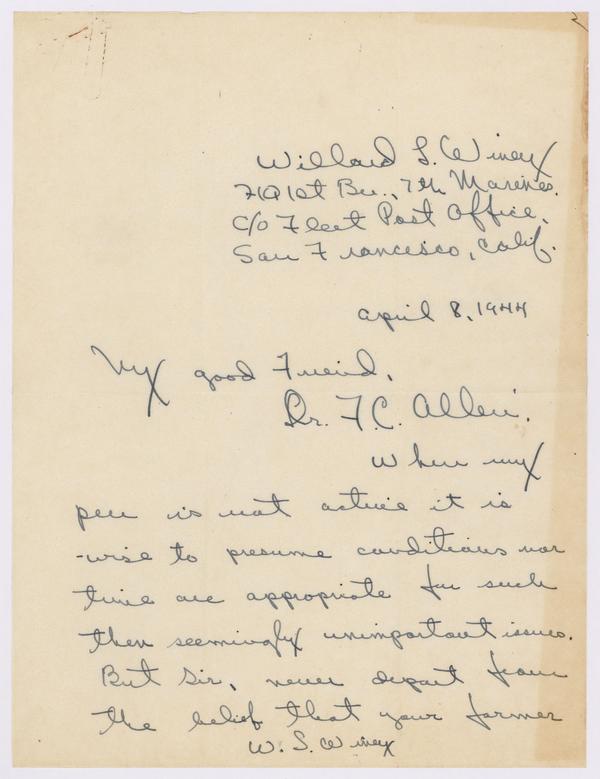 Willard S. Winey
7th Marines.
c/o Fleet Post Office,
San Francesco, Calif.
April 8, 1944
My good Friend,
Dr. F.C. Allen.
When my
pen is not active it is
wise to presume conditions nor
time are appropriate for such
then seemingly unimportant issues.
But Sir, never depart from
the belief that your former
W. S. Winey